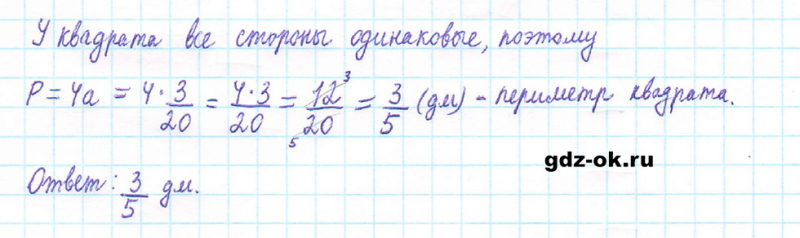 У квадрата все стороны одинаковые, поэтому
P = 4a = 4 · 3/20 = 4·3/20 = 12³/₅20 = 3/5 (дм) - периметр квадрата.
gdz-ok.ru
Ответ: 3/5 дм.